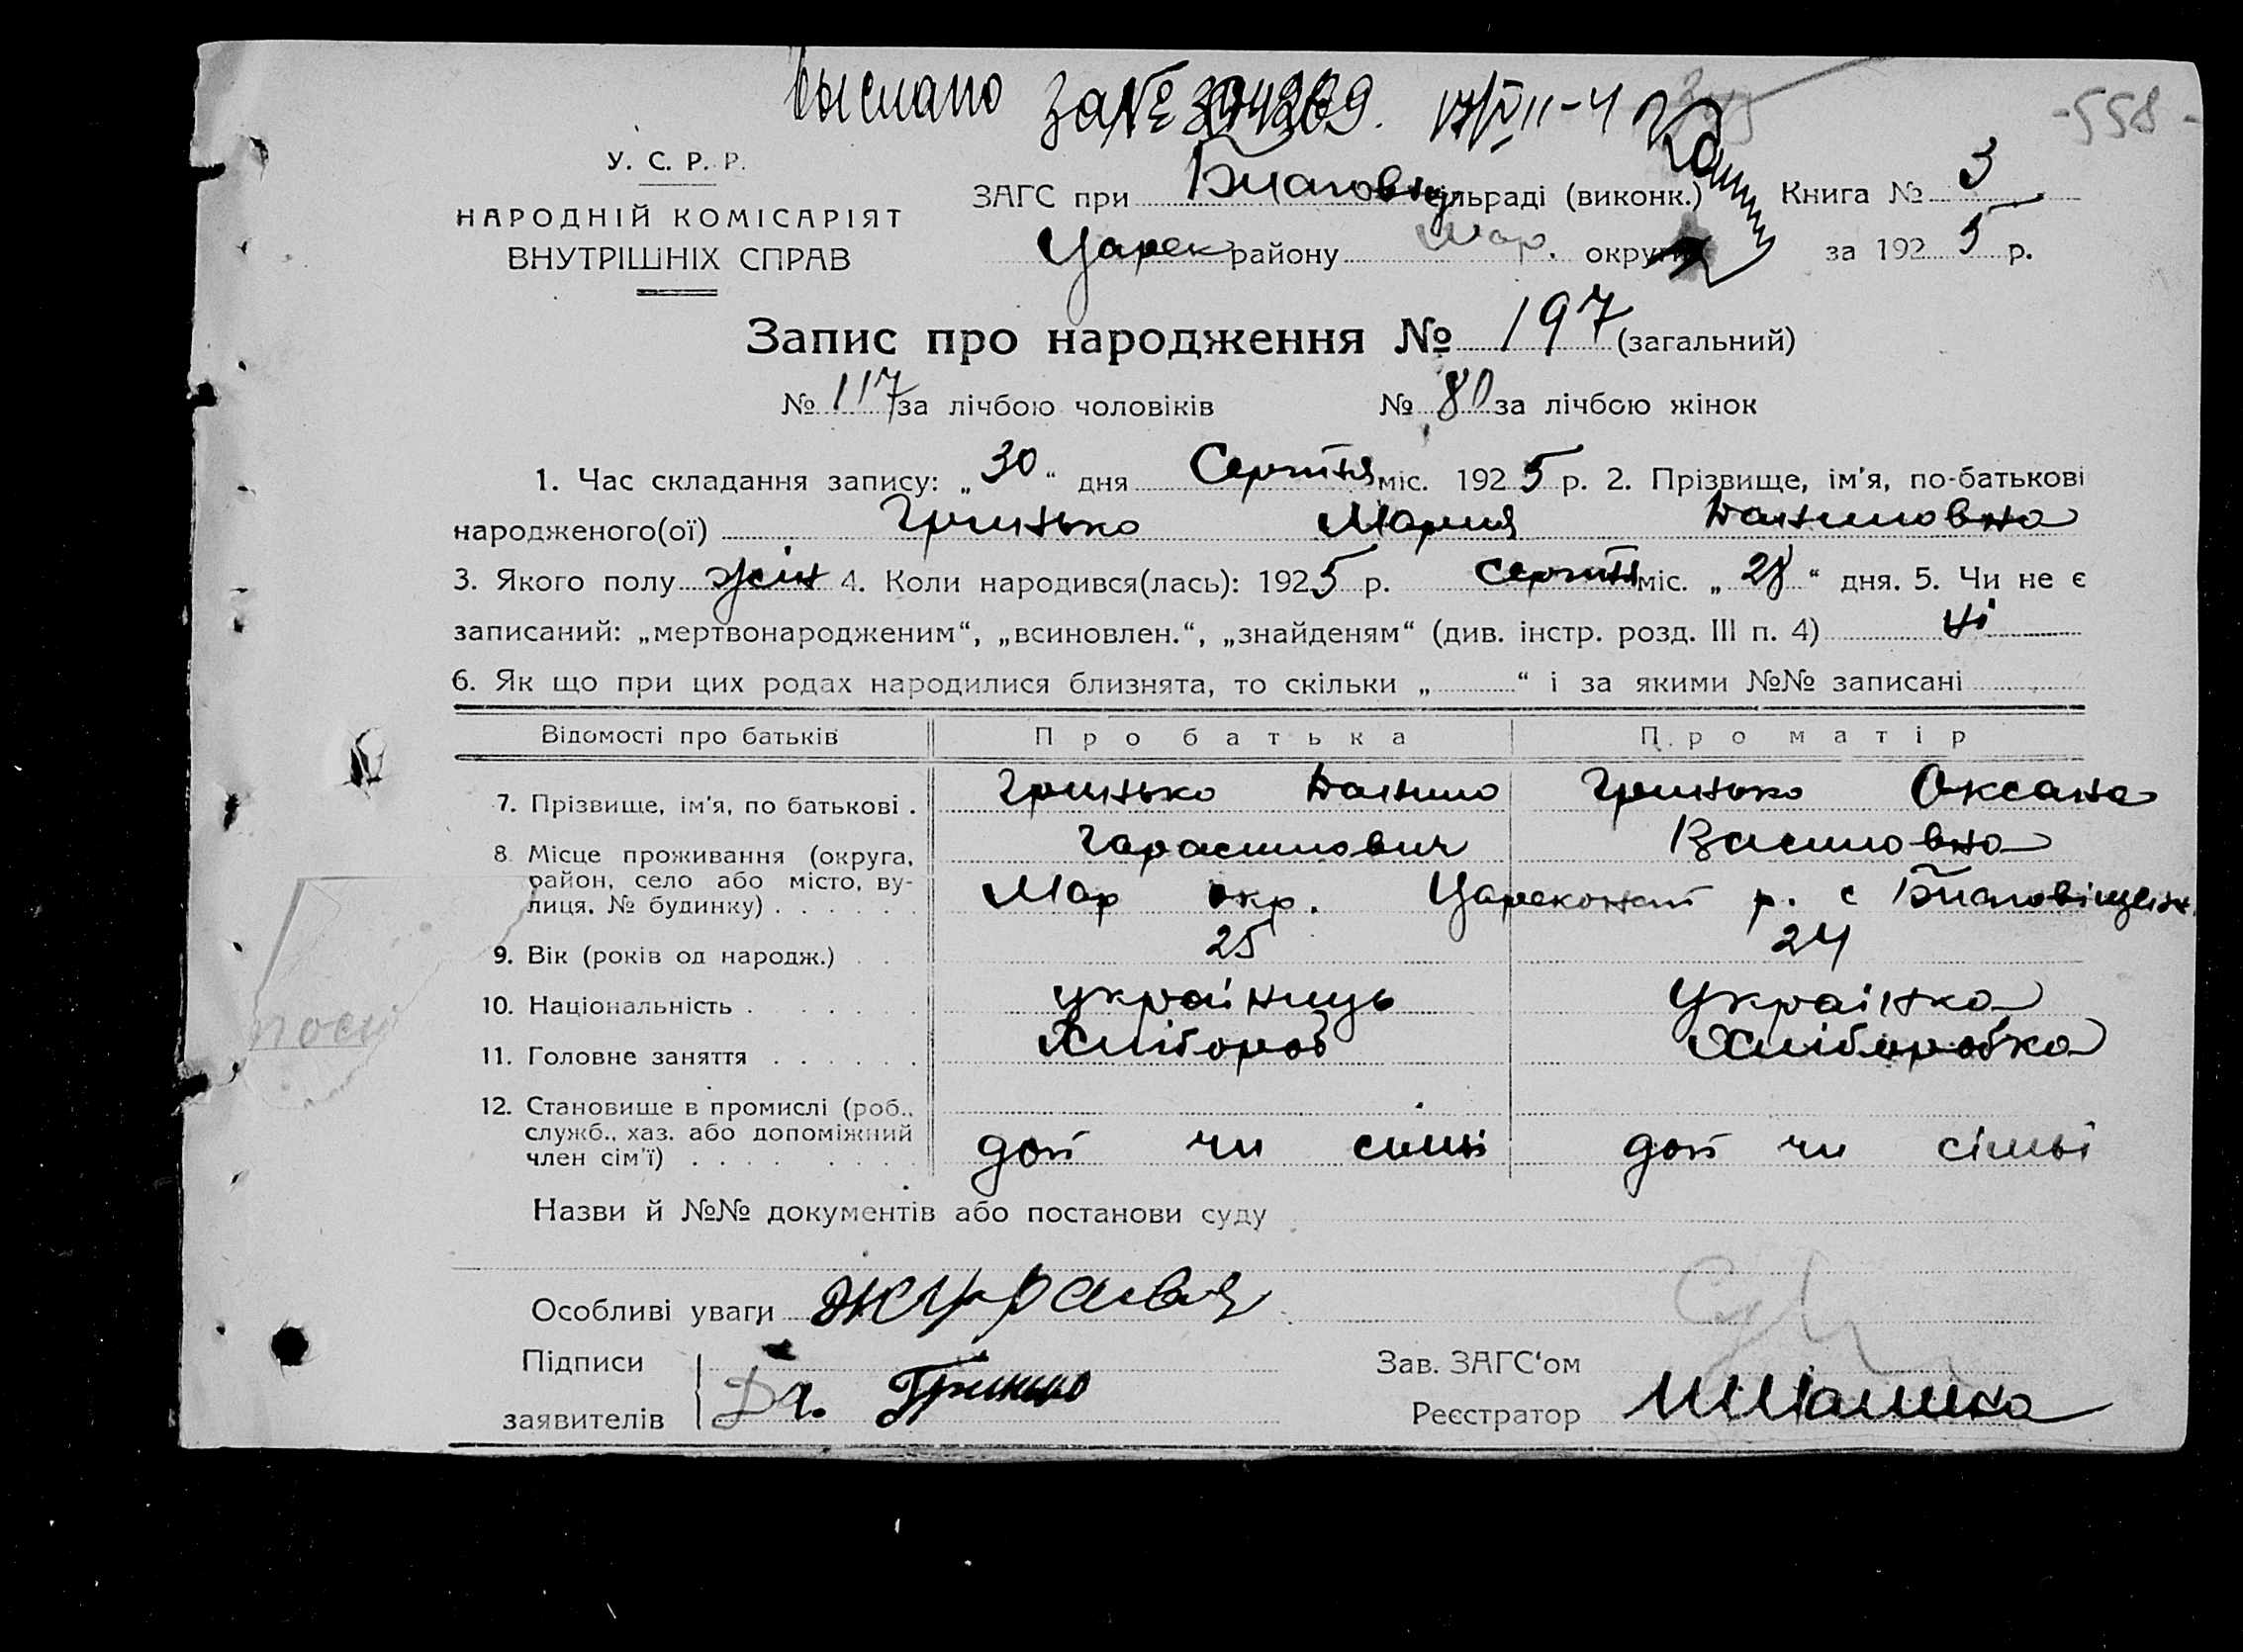 выслано за № 17/VII-4
-558-
У. С. Р. Р.
НАРОДНІЙ КОМІСАРІЯТ
ВНУТРІШНІХ СПРАВ
ЗАГС при Благовіщ сільраді (виконк.) Книга № 3
Царек району Мар. округи за 1925 р.
Запис про народження № 197 (загальний)
№ 117 за лічбою чоловіків № 80 за лічбою жінок
1. Час складання запису: „30“ дня Серпня міс. 1925 р. 2. Прізвище, ім'я, по-батькові
народженого(ої) Гринько Мария Даниловна
3. Якого полу жін 4. Коли народився(лась): 1925 р. Серпня міс. „28“ дня. 5. Чи не є
записаний: „мертвонародженим“, „всиновлен.“, „знайденям“ (див. інстр. розд. III п. 4) ні
6. Як що при цих родах народилися близнята, то скільки „ “ і за якими №№ записані
Відомості про батьків Про батька Про матір
7. Прізвище, ім'я, по батькові . Гринько Данило Гринько Оксана
Гарасимович Василовна
8. Місце проживання (округа,
район, село або місто, ву-
лиця, № будинку) . . . . . Мар окр. Цареконст р. с Благовіщен
9. Вік (років од народж.) . . 25 24
10. Національність . . . . . . українець Українка
11. Головне заняття . . . . . . Хлібороб Хліборобка
12. Становище в промислі (роб.,
служб., хаз. або допоміжний
член сім'ї) . . . . . . . . доп чл симьі доп чл сімьі
Назви й №№ документів або постанови суду
Особливі уваги
Підписи
заявителів Гринько
Зав. ЗАГС'ом
Реєстратор